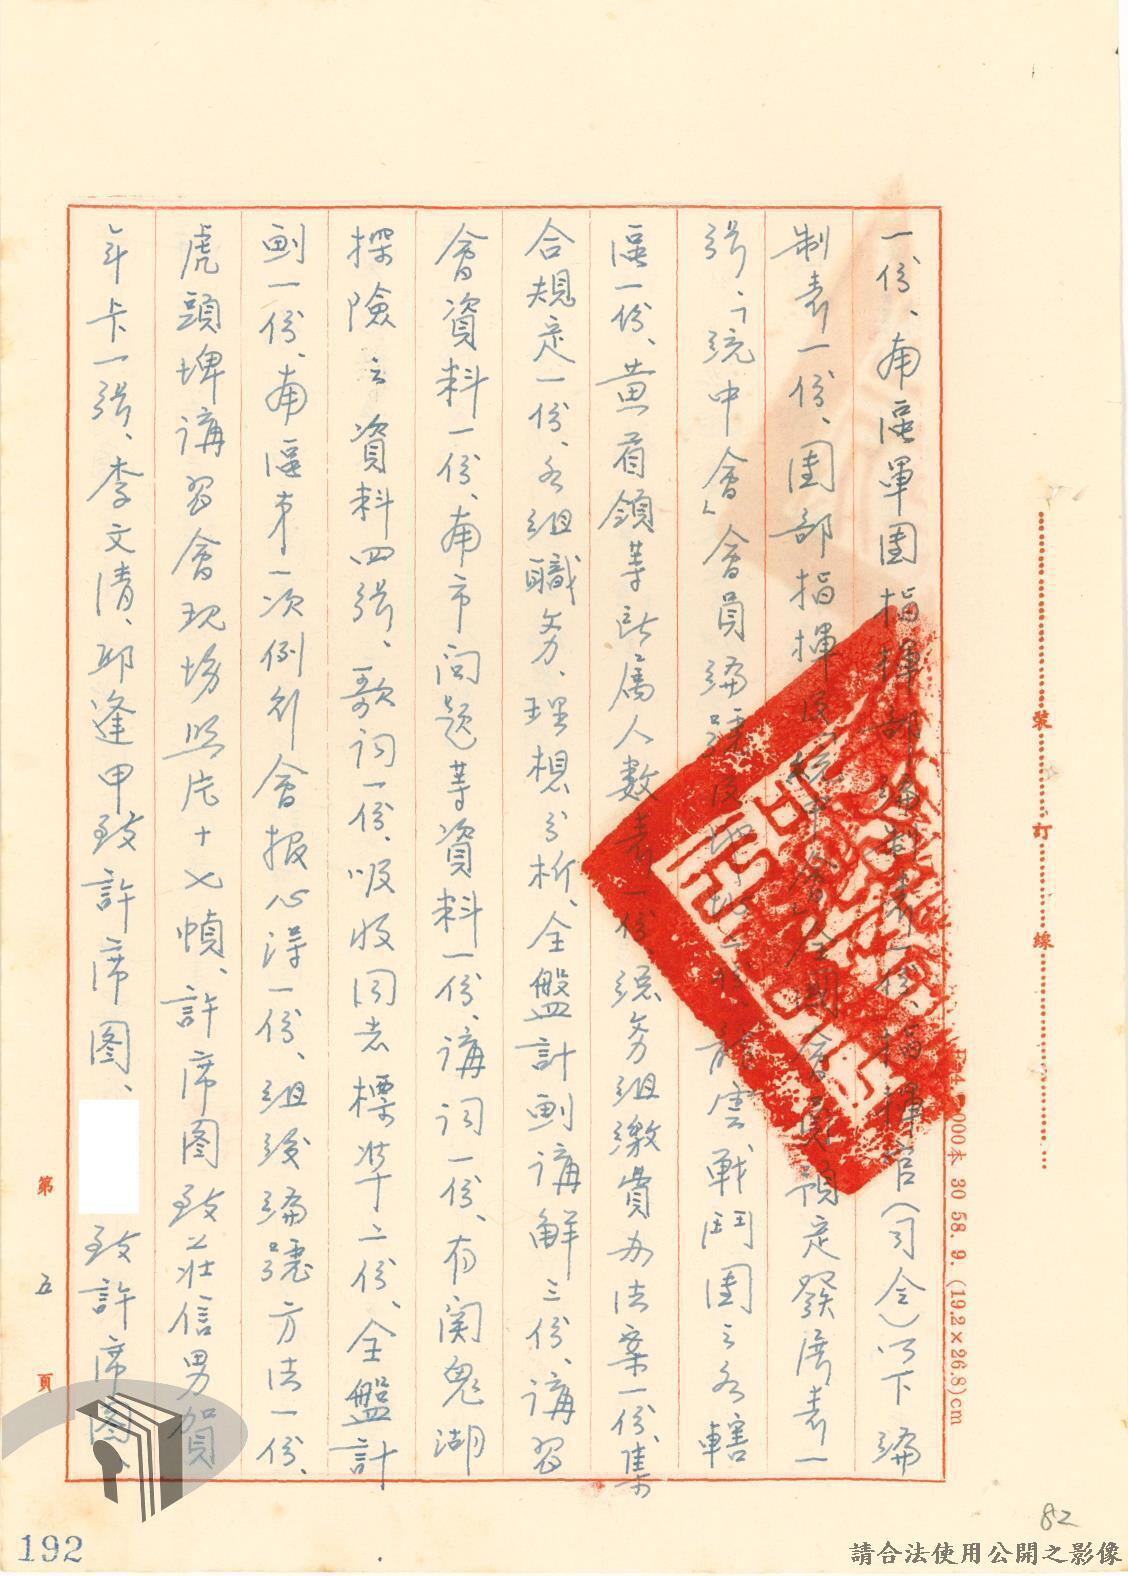 一份、南區軍團指揮部編制表一份、指揮官(司令)以下編
制表一份、團部指揮及「統中會」全國會員預定發展表一
張、「統中會」會員編號及地址二份、龍雲戰鬥團之各轄
區一份、黃首領等計屬人數表一份、總務組繳費办法案一份、集
合規定一份、各組職务、理想分析、全盤計劃講解三份、講習
會資料一份、南市问題等資料一份、講词一份、有関鬼湖
探險之資料四張、歌词一份、吸收同志標準二份、全盤計
劃一份、南區第一次例行會报心得一份、組後編號方法一份、
虎頭埤講習會現場照片十七幀、許席图致莊信男賀
年卡一張、李文清、邱逢甲致許席图、
致許席图、
第 五 頁
裝 訂 線
000本 30 58. 9. (19.2×26.8)cm
192
82
請合法使用公開之影像